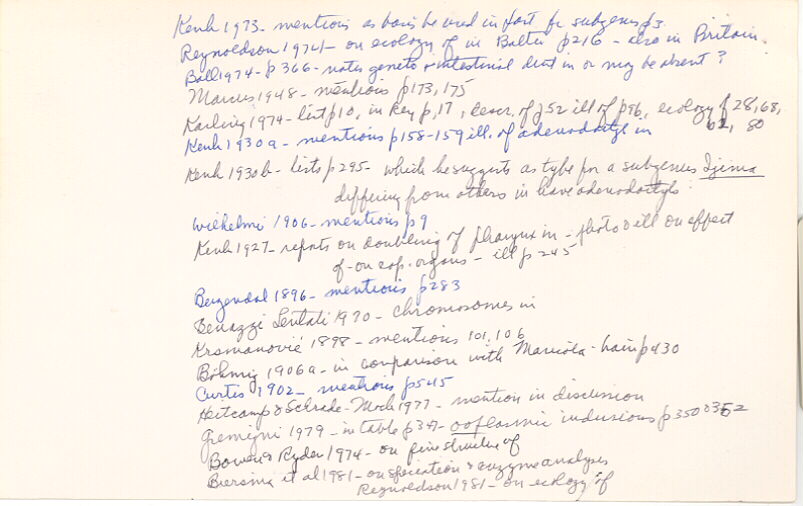 Kenk 1973- mentions as basis he used in part for subgenus p3
Reynoldson 1974- on ecology of in Baltic p216 - also in Britain.
Ball 1974- p366- notes genito + intestinal duct in or may be absent?
Marcus 1948- mentions p173, 175
Karling 1974- list p10, in key p,17, descr. of p52 ill of p96, ecology of 28, 68,
62, 80
Kenk 1930a- mentions p158-159 ill. of adenodactyl in
Kenk 1930b- lists p295- which he suggests as type for a subgenus Ijima
differing from others in have adenodactyls
Wilhelmi 1906- mentions p9
Kenk 1927- reports on doubling of pharynx in - photo & ill on effect
of - on cop. organs - ill p 245
Bergendal 1896- mentions p283
Benazzi Lentati 1970 - chromosomes in
Krsmanović 1898- mentions 101, 106
Böhmig 1906a- in comparison with Maricola - p430
Curtis 1902- mentions p545
Heitcamp & Schrade-Mock 1977 - mention in discussion
Gremigni 1979 - in table p347- ooplasmic inclusions p350 352
Bowen & Ryder 1974 - on fine structure of
Biersma et al 1981- on speciation & enzyme analyses
Reynoldson 1981- on ecology of